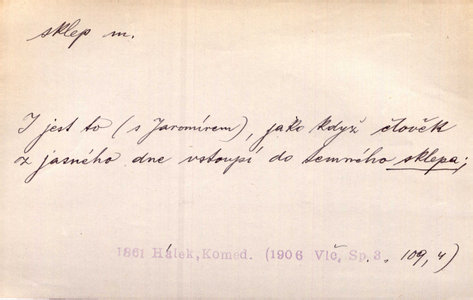 sklep m.
I jest to (s Jaromírem), jako když člověk
z jasného dne vstoupí do temného sklepa;
1861 Hálek, Komed. (1906 Vlč, Sp. 3, 109, 4)